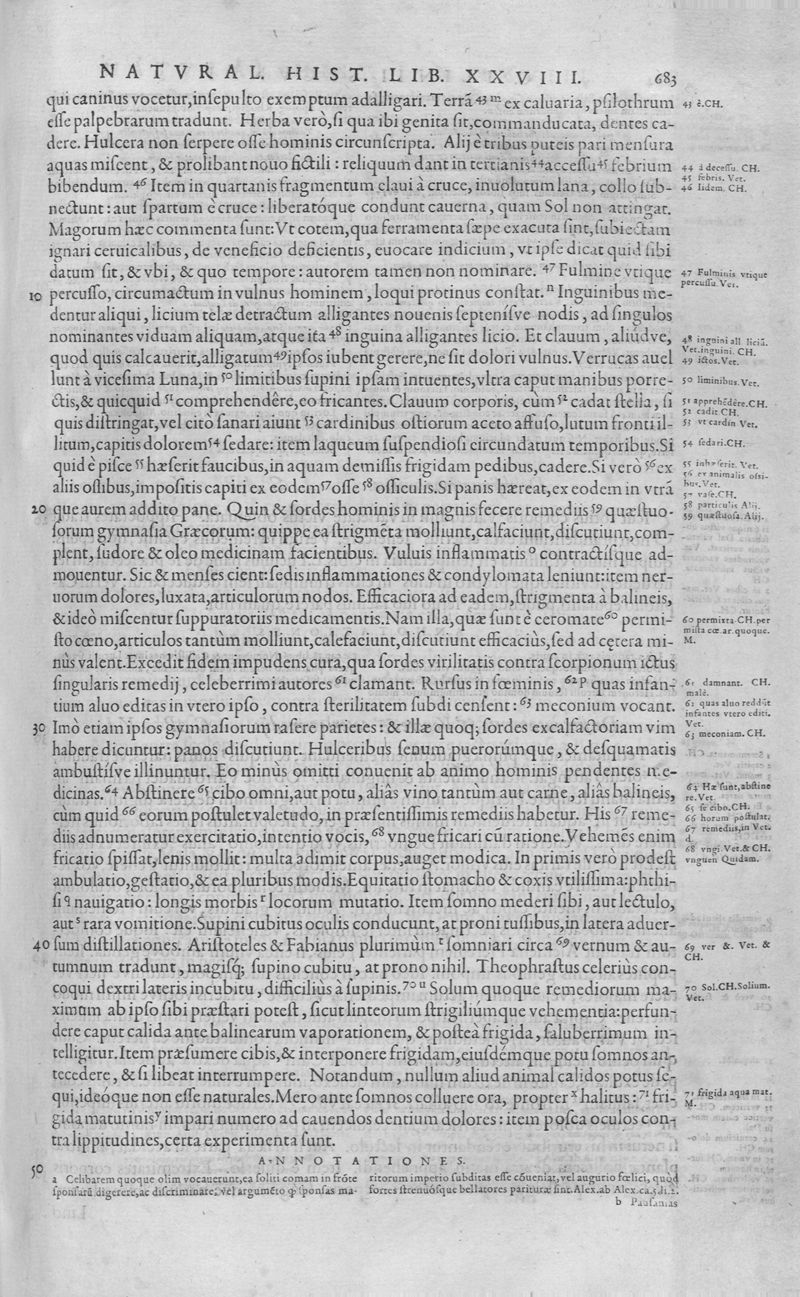 NATVRAL. HIST. LIB. XXVIII. 683
qui caninus vocetur,insepulto exemptum adalligari. Terrā 43 m ex caluaria, psilothrum
esse palpebrarum tradunt. Herba verò,si qua ibi genita sit,commanducata, dentes ca-
dere. Hulcera non serpere osse hominis circunscripta. Alij è tribus puteis pari mensura
aquas miscent, & prolibant nouo fictili : reliquum dant in tertianis 44 accessu 45 febrium
bibendum. 46 Item in quartanis fragmentum claui à cruce, inuolutum lana, collo sub-
nectunt : aut spartum è cruce : liberatóque condunt cauerna, quam Sol non attingat.
Magorum hæc commenta sunt: Vt cotem,qua ferramenta sæpe exacuta sint,subiectam
ignari ceruicalibus, de veneficio deficientis, euocare indicium, vt ipse dicat quid sibi
datum sit,& vbi, & quo tempore : autorem tamen non nominare. 47 Fulmine vtique
10 percusso, circumactum in vulnus hominem, loqui protinus constat. n Inguinibus me-
dentur aliqui, licium telæ detractum alligantes nouenis septenísve nodis, ad singulos
nominantes viduam aliquam,atque ita 48 inguina alligantes licio. Et clauum, aliúdve,
quod quis calcauerit,alligatum 49 ipsos iubent gerere,ne sit dolori vulnus.Verrucas auel
lunt à vicesima Luna,in 50 limitibus supini ipsam intuentes,vltra caput manibus porre-
ctis,& quicquid 51 comprehendêre,eo fricantes.Clauum corporis, cùm 52 cadat stella, si
quis distringat,vel citò sanari aiunt 53 cardinibus ostiorum aceto affuso,lutum fronti il-
litum,capitis dolorem 54 sedare: item laqueum suspendiosi circundatum temporibus.Si
quid è pisce 55 hæserit faucibus,in aquam demissis frigidam pedibus,cadere.Si verò 56 ex
aliis ossibus,impositis capiti ex eodem 57 osse 58 officulis.Si panis hæreat,ex eodem in vtrá
20 que aurem addito pane. Quin & sordes hominis in magnis fecere remediis 59 quæstuo-
sorum gymnasia Græcorum: quippe ea strigmēta molliunt,calfaciunt,discutiunt,com-
plent,sudore & oleo medicinam facientibus. Vuluis inflammatis o contractísque ad-
mouentur. Sic & menses cient: sedis inflammationes & condylomata leniunt: item ner-
uorum dolores,luxata,articulorum nodos. Efficaciora ad eadem,strigmenta à balineis,
& ideò miscentur suppuratoriis medicamentis.Nam illa,quæ sunt è ceromate 60 permi-
sto cœno,articulos tantùm molliunt,calefaciunt,discutiunt efficaciùs,sed ad cętera mi-
nùs valent.Excedit fidem impudens cura,qua sordes virilitatis contra scorpionum ictus
singularis remedij, celeberrimi autores 61 clamant. Rursus in fœminis, 62 p quas infan-
tium aluo editas in vtero ipso, contra sterilitatem subdi censent : 63 meconium vocant.
30 Imò etiam ipsos gymnasiorum rasere parietes : & illæ quoq; sordes excalfactoriam vim
habere dicuntur: panos discutiunt. Hulceribus senum puerorúmque, & desquamatis
ambustísve illinuntur. Eo minùs omitti conuenit ab animo hominis pendentes me-
dicinas. 64 Abstinere 65 cibo omni,aut potu, aliàs vino tantùm aut carne, aliàs balineis,
cùm quid 66 eorum postulet valetudo, in præsentissimis remediis habetur. His 67 reme-
diis adnumeratur exercitatio,intentio vocis, 68 vngue fricari cū ratione.Vehemēs enim
fricatio spissat,lenis mollit : multa adimit corpus,auget modica. In primis verò prodest
ambulatio,gestatio,& ea pluribus modis.Equitatio stomacho & coxis vtilissima:phthi-
si q nauigatio : longis morbis r locorum mutatio. Item somno mederi sibi, aut lectulo,
aut s rara vomitione.Supini cubitus oculis conducunt, at proni tussibus,in latera aduer-
40 sum distillationes. Aristoteles & Fabianus plurimùm t somniari circa 69 vernum & au-
tumnum tradunt, magisq́; supino cubitu, at prono nihil. Theophrastus celeriùs con-
coqui dextri lateris incubitu, difficiliùs à supinis. 70 u Solum quoque remediorum ma-
ximum ab ipso sibi præstari potest, sicut linteorum strigiliúmque vehementia:perfun-
dere caput calida ante balinearum vaporationem, & posteà frigida, saluberrimum in-
telligitur.Item præsumere cibis,& interponere frigidam,eiusdémque potu somnos an-
tecedere, & si libeat interrumpere. Notandum, nullum aliud animal calidos potus se-
qui,ideóque non esse naturales.Mero ante somnos colluere ora, propter x halitus : 71 fri-
gida matutinis y impari numero ad cauendos dentium dolores : item posca oculos con-
tra lippitudines,certa experimenta sunt.
43 è.CH.
44 à decessu. CH.
45 febris. Vet.
46 Iidem. CH.
47 Fulminis vtique
percussu. Vet.
48 inguini all. liciū.
Vet.inguini. CH.
49 ictos.Vet.
50 liminibus.Vet.
51 apprehēdêre.CH.
52 cadit CH.
53 vt cardin Vet.
54 sedari.CH.
55 inhæserit. Vet.
56 ex animalis ossi-
bus.Vet.
57 vase.CH.
58 particulis Alij.
59 quæstuosa.Alij.
60 permixta.CH.per
mista cœ.ar.quoque.
M.
61 damnant. CH.
malè.
62 quas aluo reddūt
infantes vtero editi.
Vet.
63 meconiam.CH.
64 Hæ sunt,abstine
re.Vet.
65 se cibo.CH.
66 horum postulat.
67 remediis,in Vet.
d.
68 vngi.Vet.& CH.
vnguen Quidam.
69 ver &. Vet. &
CH.
70 Sol.CH.Solium.
Vet.
71 frigida aqua mat.
M.
ANNOTATIONES.
50
a Celibarem quoque olim vocauerunt,ea soliti comam in frōte
sponsarū digerere,ac discriminare: vel argumēto q̃ sponsas ma-
ritorum imperio subditas esse cōueniat,vel augurio fœlici, quòd
fortes strenuósque bellatores parituræ sint.Alex.ab Alex.ca.5.di.2.
b Pausanias